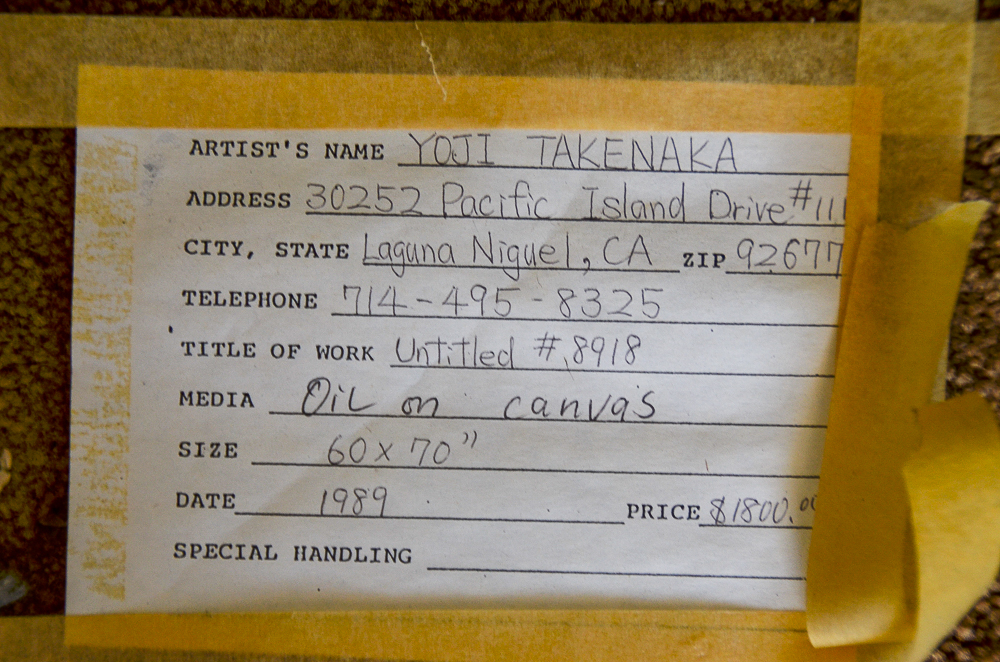 ARTIST'S NAME YOJI TAKENAKA
ADDRESS 30252 Pacific Island Drive #111
CITY, STATE Laguna Niguel, CA ZIP 92677
TELEPHONE 714-495-8325
TITLE OF WORK Untitled #8918
MEDIA Oil on canvas
SIZE 60 x 70"
DATE 1989 PRICE $1800.00
SPECIAL HANDLING